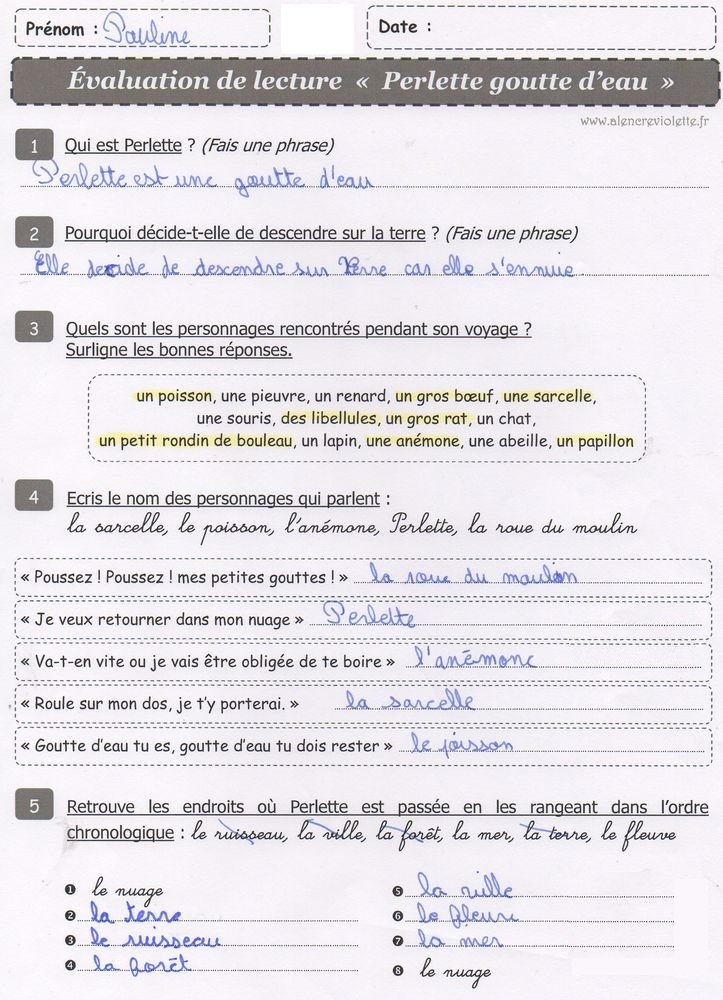 Prénom : Pauline
Date :
Évaluation de lecture « Perlette goutte d'eau »
www.alencreviolette.fr
1 Qui est Perlette ? (Fais une phrase)
Perlette est une goutte d'eau
2 Pourquoi décide-t-elle de descendre sur la terre ? (Fais une phrase)
Elle decide de descendre sur Terre car elle s'ennuie.
3 Quels sont les personnages rencontrés pendant son voyage ?
Surligne les bonnes réponses.
un poisson, une pieuvre, un renard, un gros bœuf, une sarcelle,
une souris, des libellules, un gros rat, un chat,
un petit rondin de bouleau, un lapin, une anémone, une abeille, un papillon
4 Ecris le nom des personnages qui parlent :
la sarcelle, le poisson, l'anémone, Perlette, la roue du moulin
« Poussez ! Poussez ! mes petites gouttes ! » la roue du moulin
« Je veux retourner dans mon nuage » Perlette
« Va-t-en vite ou je vais être obligée de te boire » l'anémone
« Roule sur mon dos, je t'y porterai. » la sarcelle
« Goutte d'eau tu es, goutte d'eau tu dois rester » le poisson
5 Retrouve les endroits où Perlette est passée en les rangeant dans l'ordre
chronologique : le ruisseau, la ville, la forêt, la mer, la terre, le fleuve
❶ le nuage
❷ la terre
❸ le ruisseau
❹ la forêt
❺ la ville
❻ le fleuve
❼ la mer
❽ le nuage